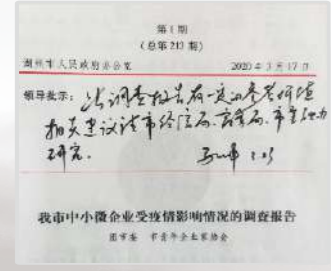 第1期
（总第213期）
湖州市人民政府办公室 2020年3月17日
领导批示：该调查报告有一定的参考价值
相关建议请市经信局、商务局、市金融办
研究。
我市中小微企业受疫情影响情况的调查报告
团市委 市青年企业家协会